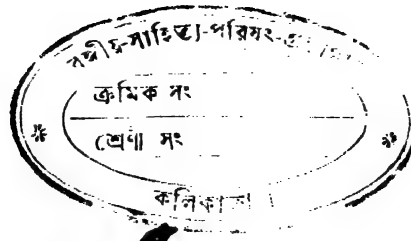 বঙ্গীয়-সাহিত্য-পরিষৎ-গ্রন্থাগার
ক্রমিক সং
শ্রেণী সং
কলিকাতা